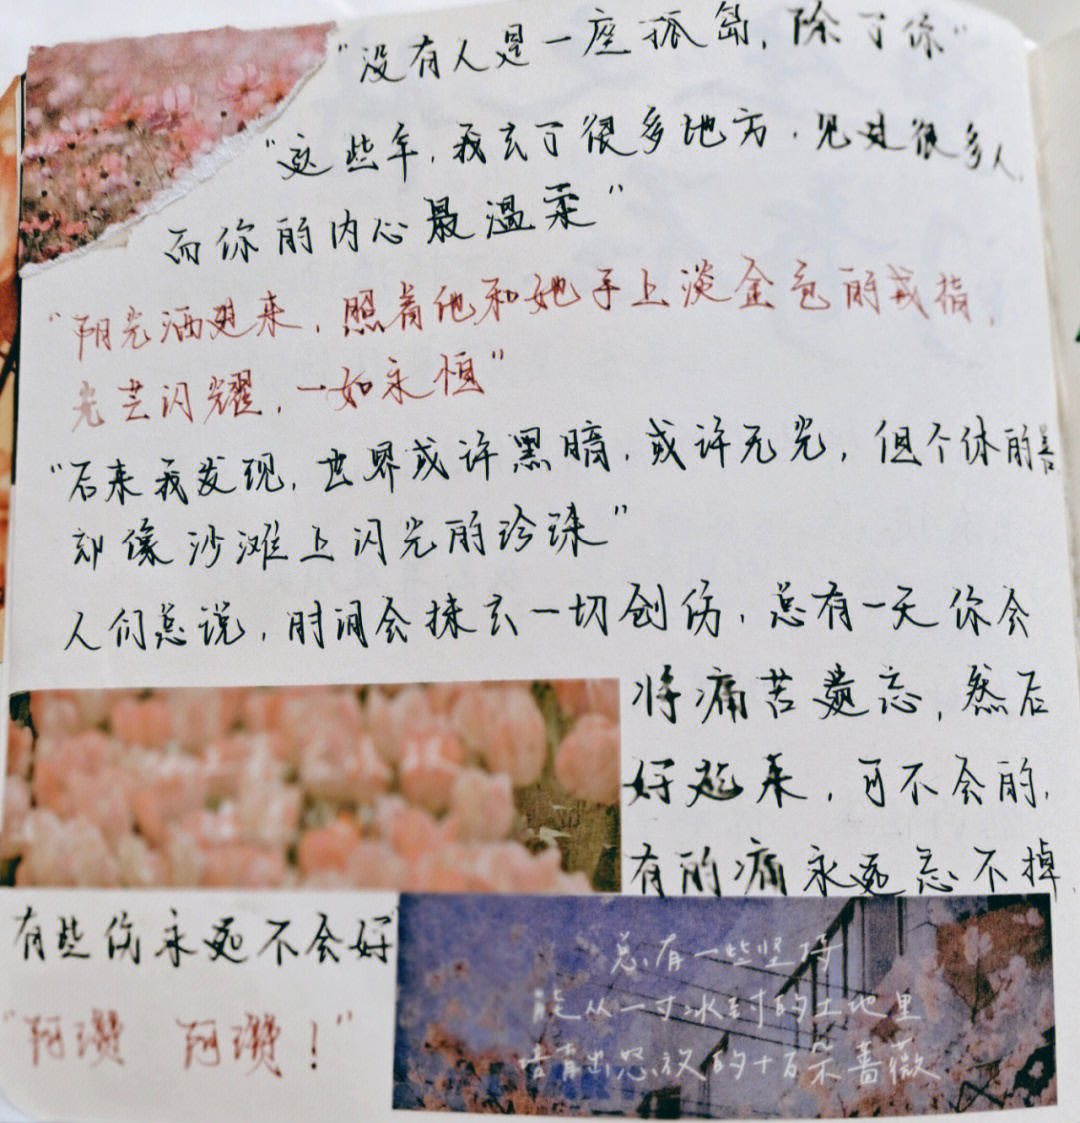 “没有人是一座孤岛，除了你”
“这些年，我去了很多地方，见过很多人，
而你的内心最温柔”
“阳光洒进来，照着他和她手上淡金色的戒指，
光芒闪耀，一如永恒”
“后来我发现，世界或许黑暗，或许无光，但个体的善
却像沙滩上闪光的珍珠”
人们总说，时间会抹去一切创伤，总有一天你会
将痛苦遗忘，然后
好起来，可不会的，
有的痛永远忘不掉，
有些伤永远不会好
“阿瓒 阿瓒！”
总有一些坚持
能从一寸冰封的土地里
培育出怒放的十百朵蔷薇